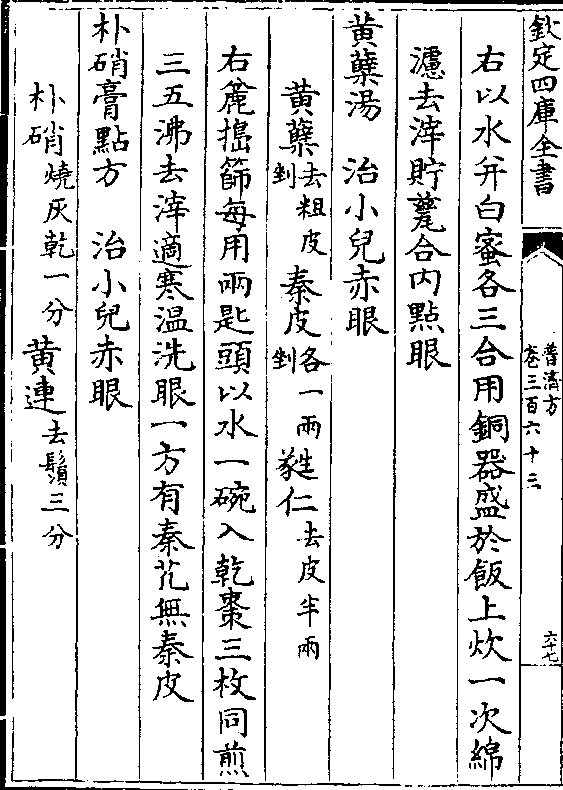 欽定四庫全書
普濟方
卷三百六十三
六十七
右以水并白蜜各三合用銅器盛於飯上炊一次綿
濾去滓貯甆合内點眼
黃蘗湯　治小兒赤眼
黃蘗去粗皮剉　秦皮各一兩剉　蕤仁去皮半兩
右麄搗篩每用兩匙頭以水一碗入乾棗三枚同煎
三五沸去滓適寒温洗眼一方有秦艽無秦皮
朴硝膏點方　治小兒赤眼
朴硝燒灰乾一分　黃連去鬚三分